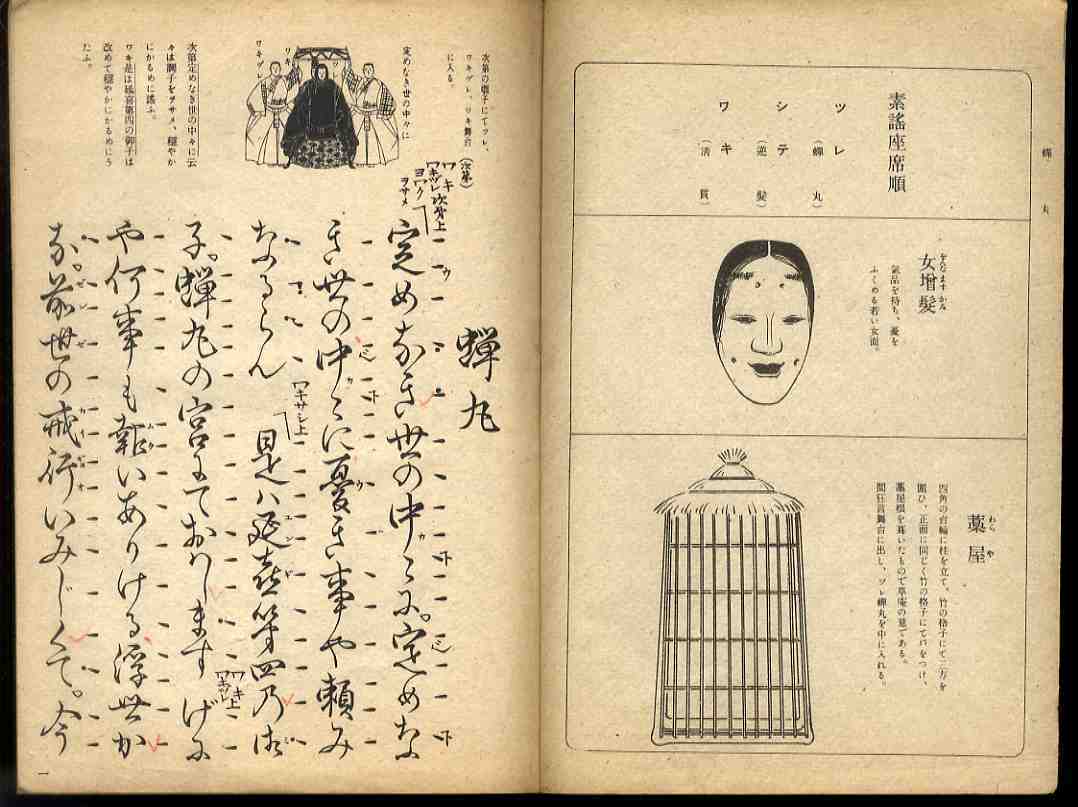 蟬丸
素謠座席順
ツレ（蟬丸）
シテ（逆髮）
ワキ（淸貫）
女增髮
をんなますかみ
氣品を持ち、憂を
ふくめる若い女面。
藁屋
わらや
四角の台輪に柱を立て、竹の格子にて三方を
圍ひ、正面に同じく竹の格子にて戸をつけ、
藁屋根を葺いたもので草庵の意である。
間狂言舞台に出し、ツレ蟬丸を中に入れる。
次第の囃子にてツレ、
ワキヅレ、ワキ舞台
に入る。
定めなき世の中々に
ワキ
ワキヅレ
次第定めなき世の中々に云
々は調子をヲサメ、穩やか
にかるめに謠ふ。
ワキ是は延喜第四の御子は
改めて穩やかにかるめにう
たふ。
蟬丸
（次第）
ワキ
ワキツレ次第上
ヨワク
ヲサメ
定めなき世の中々に。定めな
き世の中々に憂き事や頼み
なるらん
ワキサシ上
是ハ延喜第四乃御
子。蟬丸の宮にておわします
ワキ上
ワキツレ
げに
や何事も報いありける浮世か
な。前世の戒行いみじくて。今
一